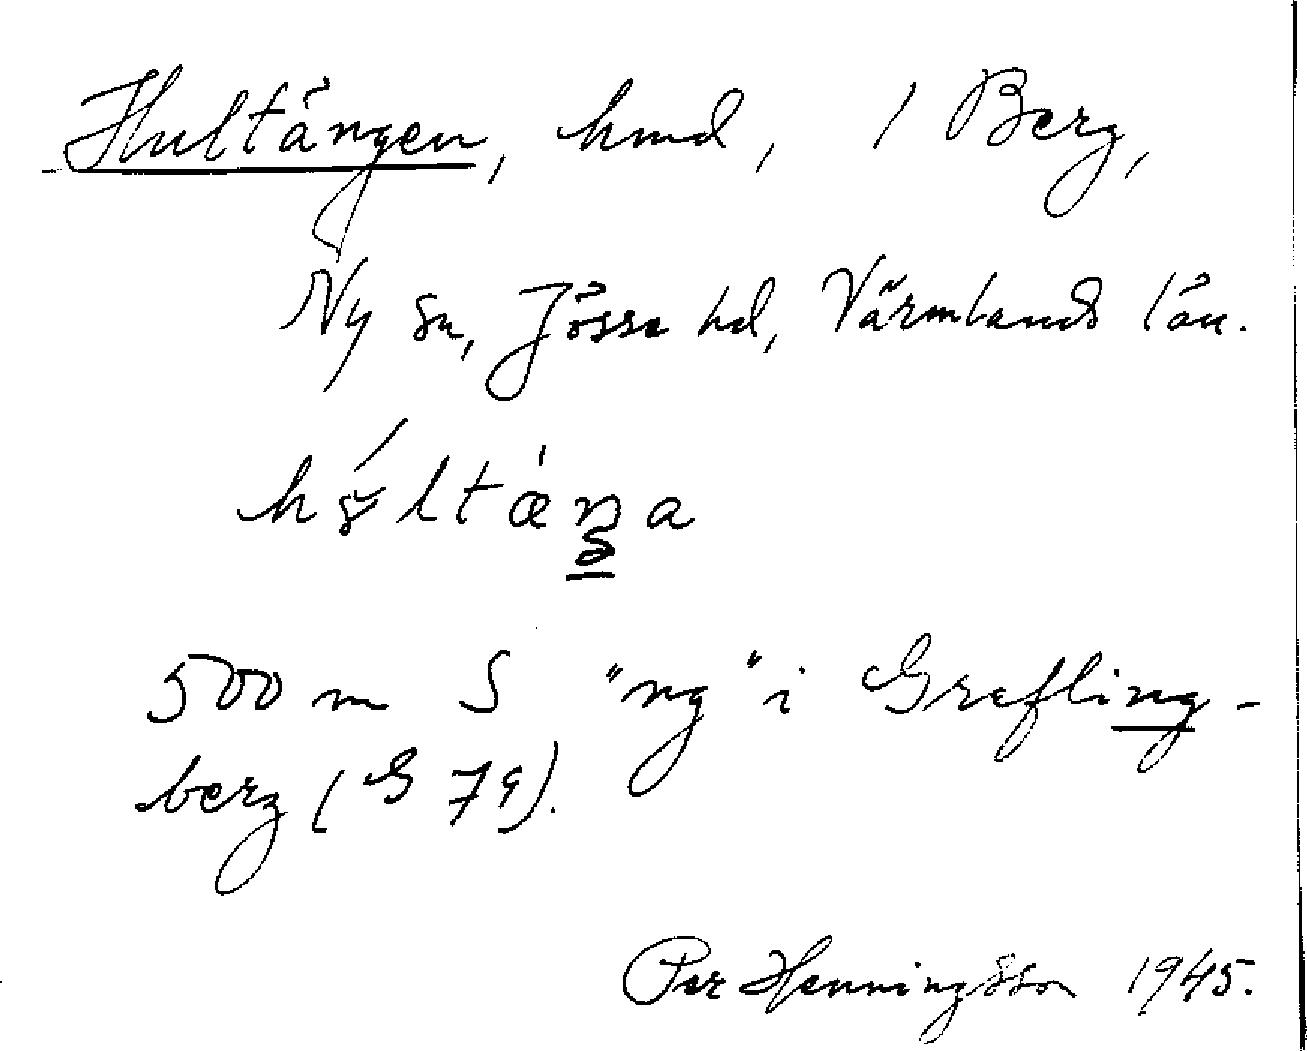 Hultängen, hmd, 1 Berg,
Ny sn, Jösse hd, Värmlands län.
500 m S "ng" i Grefling-
berg (G 79).
Per Henningsson 1945.